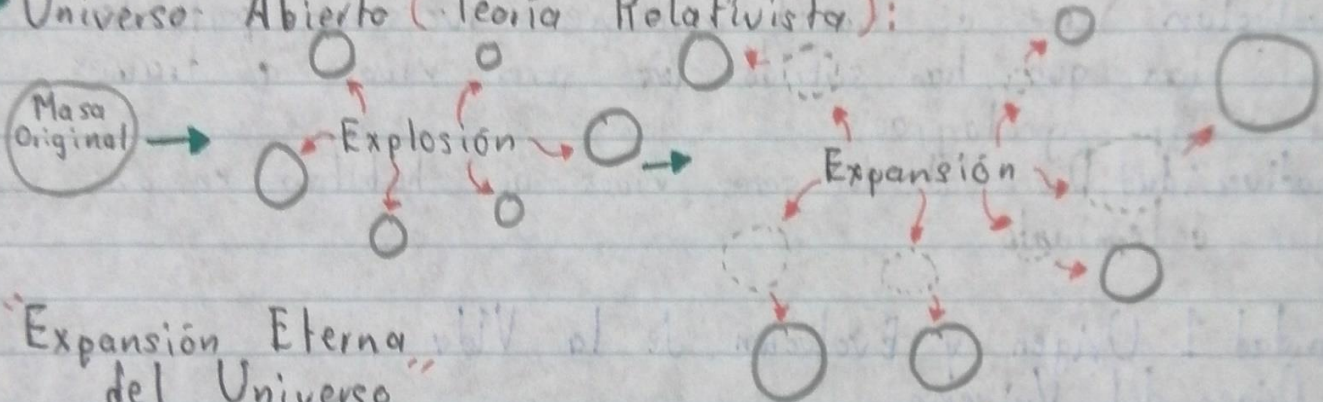 Universo Abierto (Teoría Relativista):
Masa
Original
Explosión
Expansión
"Expansión Eterna"
del Universo